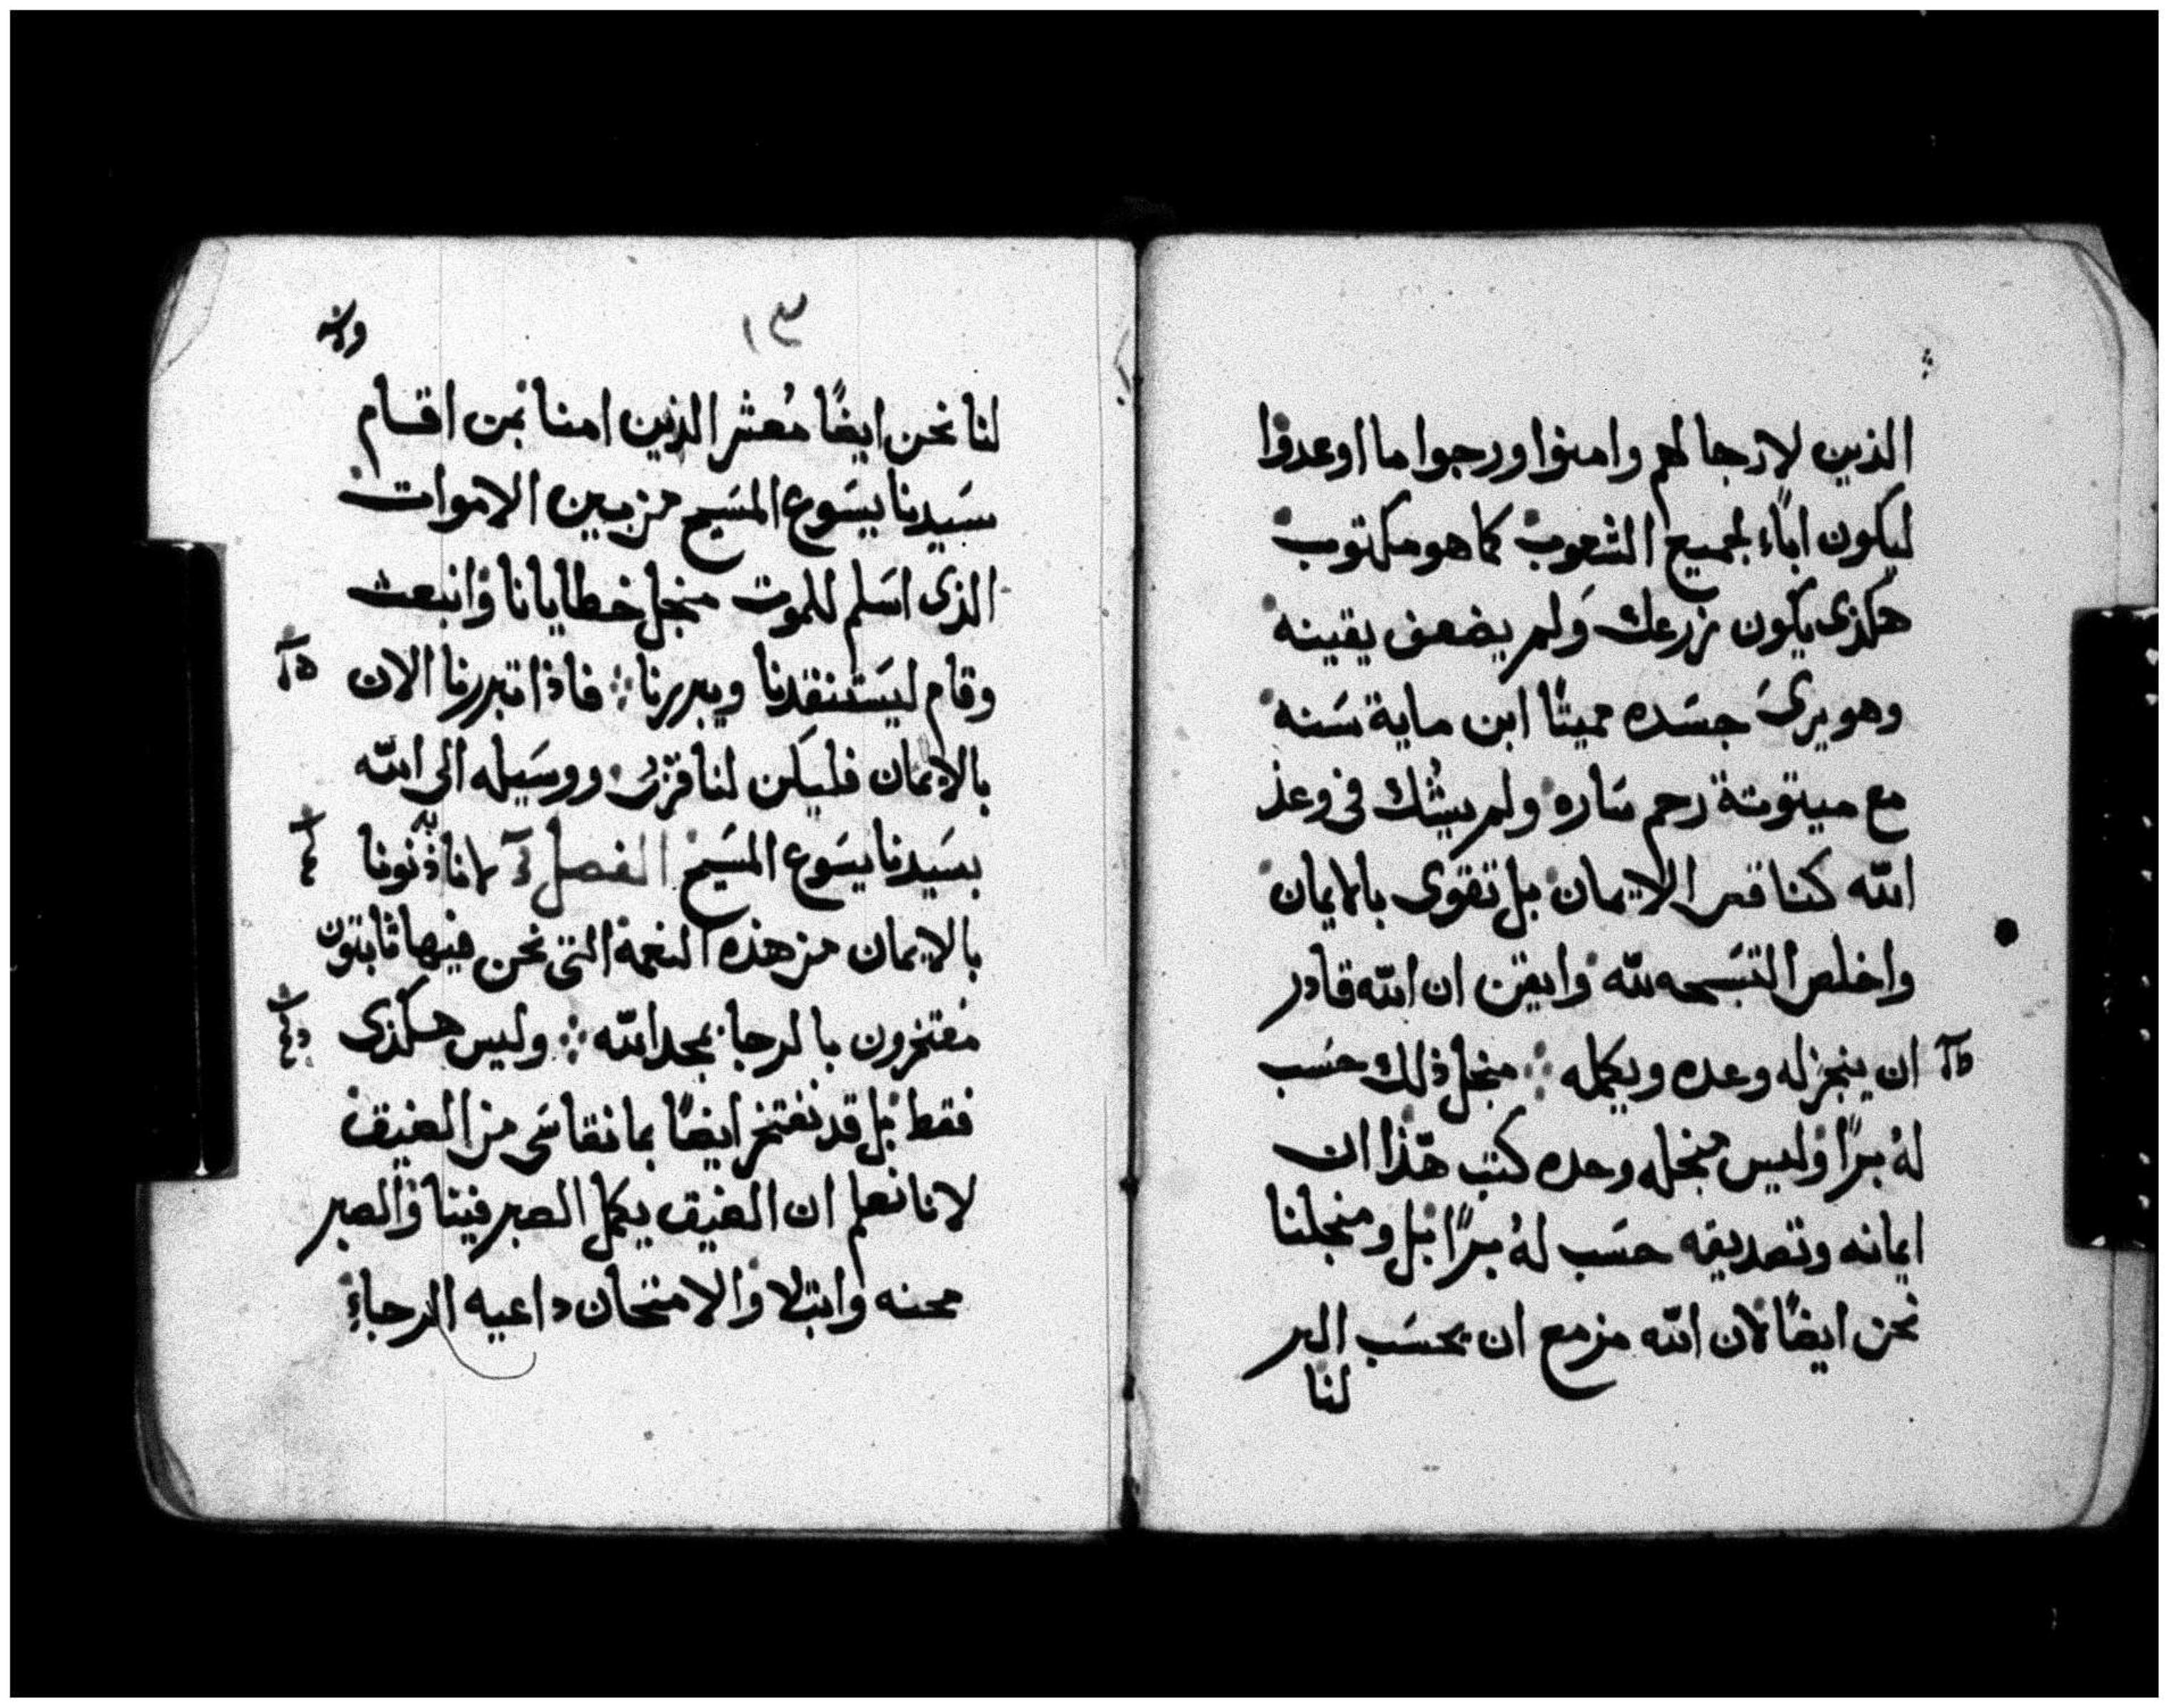 الذين لا رجا لهم وامنوا ورجوا ما اوعدوا
ليكون اباء لجميع الشعوب كما هو مكتوب
هكذى يكون زرعك ولم يضعف يقينه
وهو يرى جسده ميتًا ابن ماية سنه
مع ميتوتة رحم ساره ولم يشك في وعد
الله كناقص الايمان بل تقوى بالايمان
واخلص التسبحه لله وايقن ان الله قادر
ان ينجز له وعده ويكمله ❖ منجل ذلك حسب
لهُ برًا وليس منجله وحده كتب هذا ان
ايمانه وتصديقه حسب لهُ برًا بل ومنجلنا
نحن ايضًا لان الله مزمع ان يحسب البر
لنا
١٣
لنا نحن ايضًا معشر الذين امنا بمن اقام
سيدنا يسوع المسيح من بين الاموات
الذى اسلم للموت منجل خطايانا وانبعث
وقام ليستنقدنا ويبررنا ❖ فاذا تبررنا الان
بالايمان فليكن لنا ووسيله الى الله
بسيدنا يسوع المسيح الفصل لانا به دنونا
بالايمان من هذه النعمة التى نحن فيها ثابتون
مفتخرون بالرجا بمجد الله ❖ وليس هكذى
فقط بل قد نفتخر ايضًا بما نقاسى من الضيق
لانا نعلم ان الضيق يكمل الصبر فينا والصبر
محنه وابتلا والامتحان داعيه الرجاء